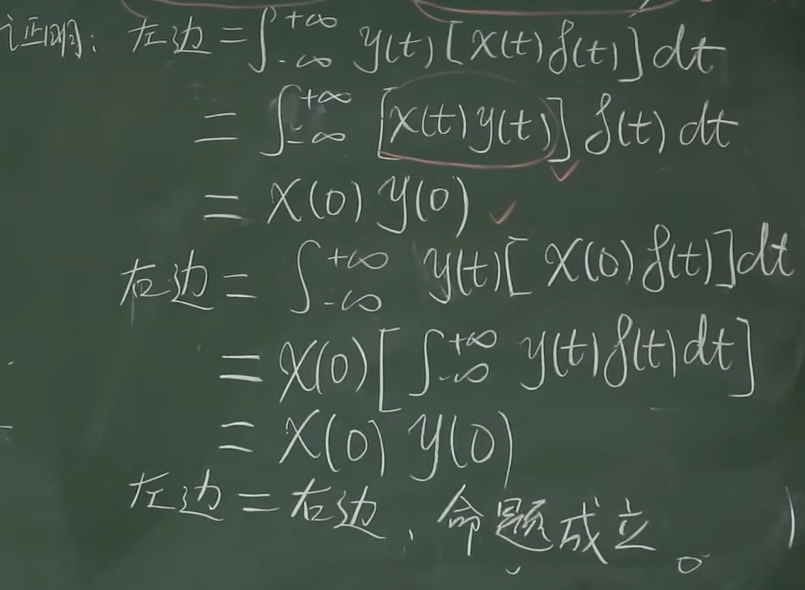 证明: 左边=∫_{-∞}^{+∞} y(t)[x(t)δ(t)]dt
=∫_{-∞}^{+∞} [x(t)y(t)]δ(t)dt
=x(0)y(0)
右边=∫_{-∞}^{+∞} y(t)[x(0)δ(t)]dt
=x(0)[∫_{-∞}^{+∞} y(t)δ(t)dt]
=x(0)y(0)
左边=右边、命题成立。